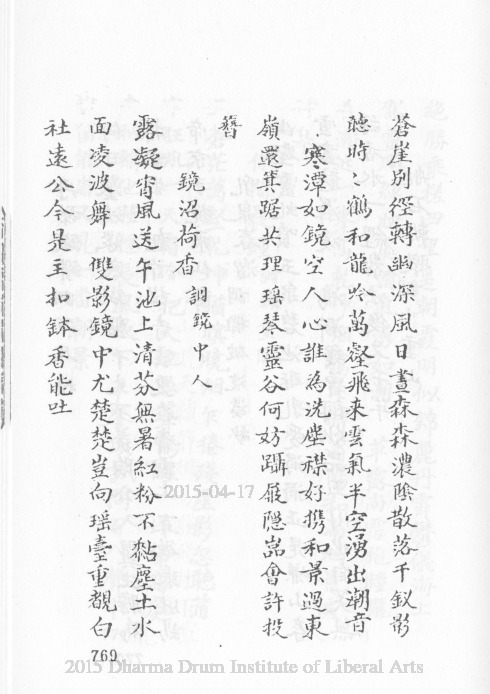 蒼崖別徑轉幽深風日晝森森濃陰散落千釵影
聽時〻鶴和龍吟萬壑飛来雲氣半空湧出潮音
寒潭如鏡空人心誰為洗塵襟好携和景過東
嶺還箕踞共理瑤琴靈谷何妨躡屐隱嵓會許投
簪
鏡沼荷香 調鏡中人
露凝宵風送午池上清芬無暑紅粉不黏塵土水
面凌波舞 雙影鏡中尤楚楚豈向瑶臺重覩白
社遠公今是主扣鉢香能吐
769
2015-04-17
2015 Dharma Drum Institute of Liberal Arts